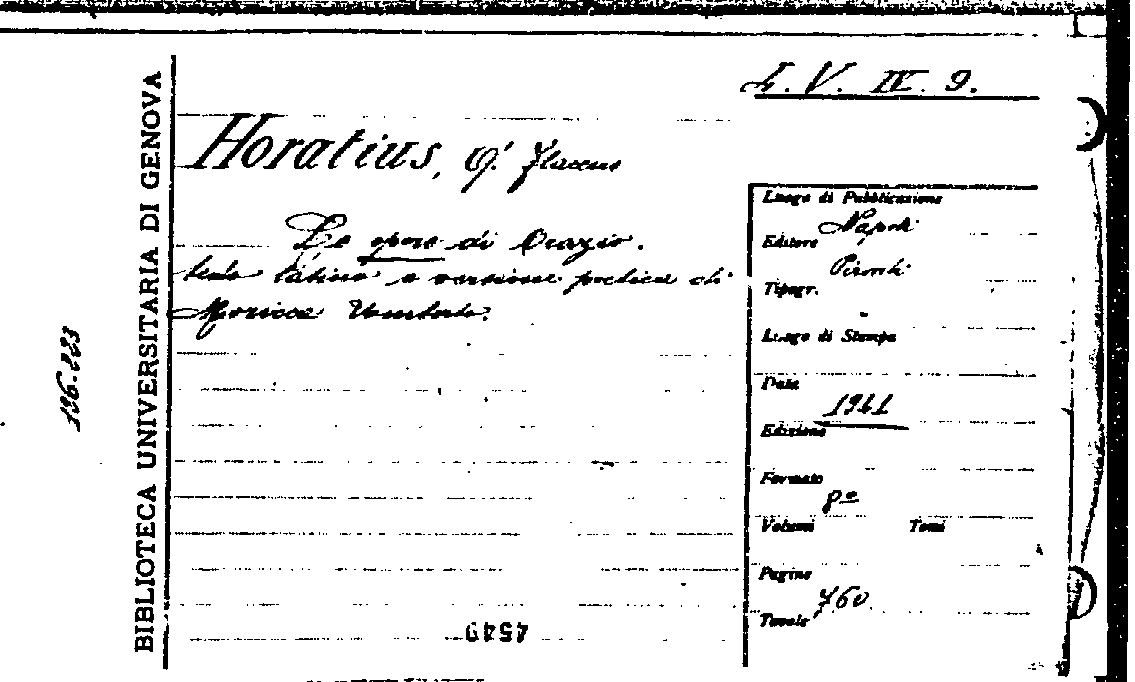 L. V. IV. 9.
Horatius, Q. Flaccus
Le opere di Orazio.
testo latino e versione poetica di
Moricca Umberto.
BIBLIOTECA UNIVERSITARIA DI GENOVA
196.223
Luogo di Pubblicazione
Napoli
Editore
Pironti
Tipogr.
Luogo di Stampa
Data
1941
Edizione
Formato
Volumi Tomi
Pagine
760
Tavole
4549